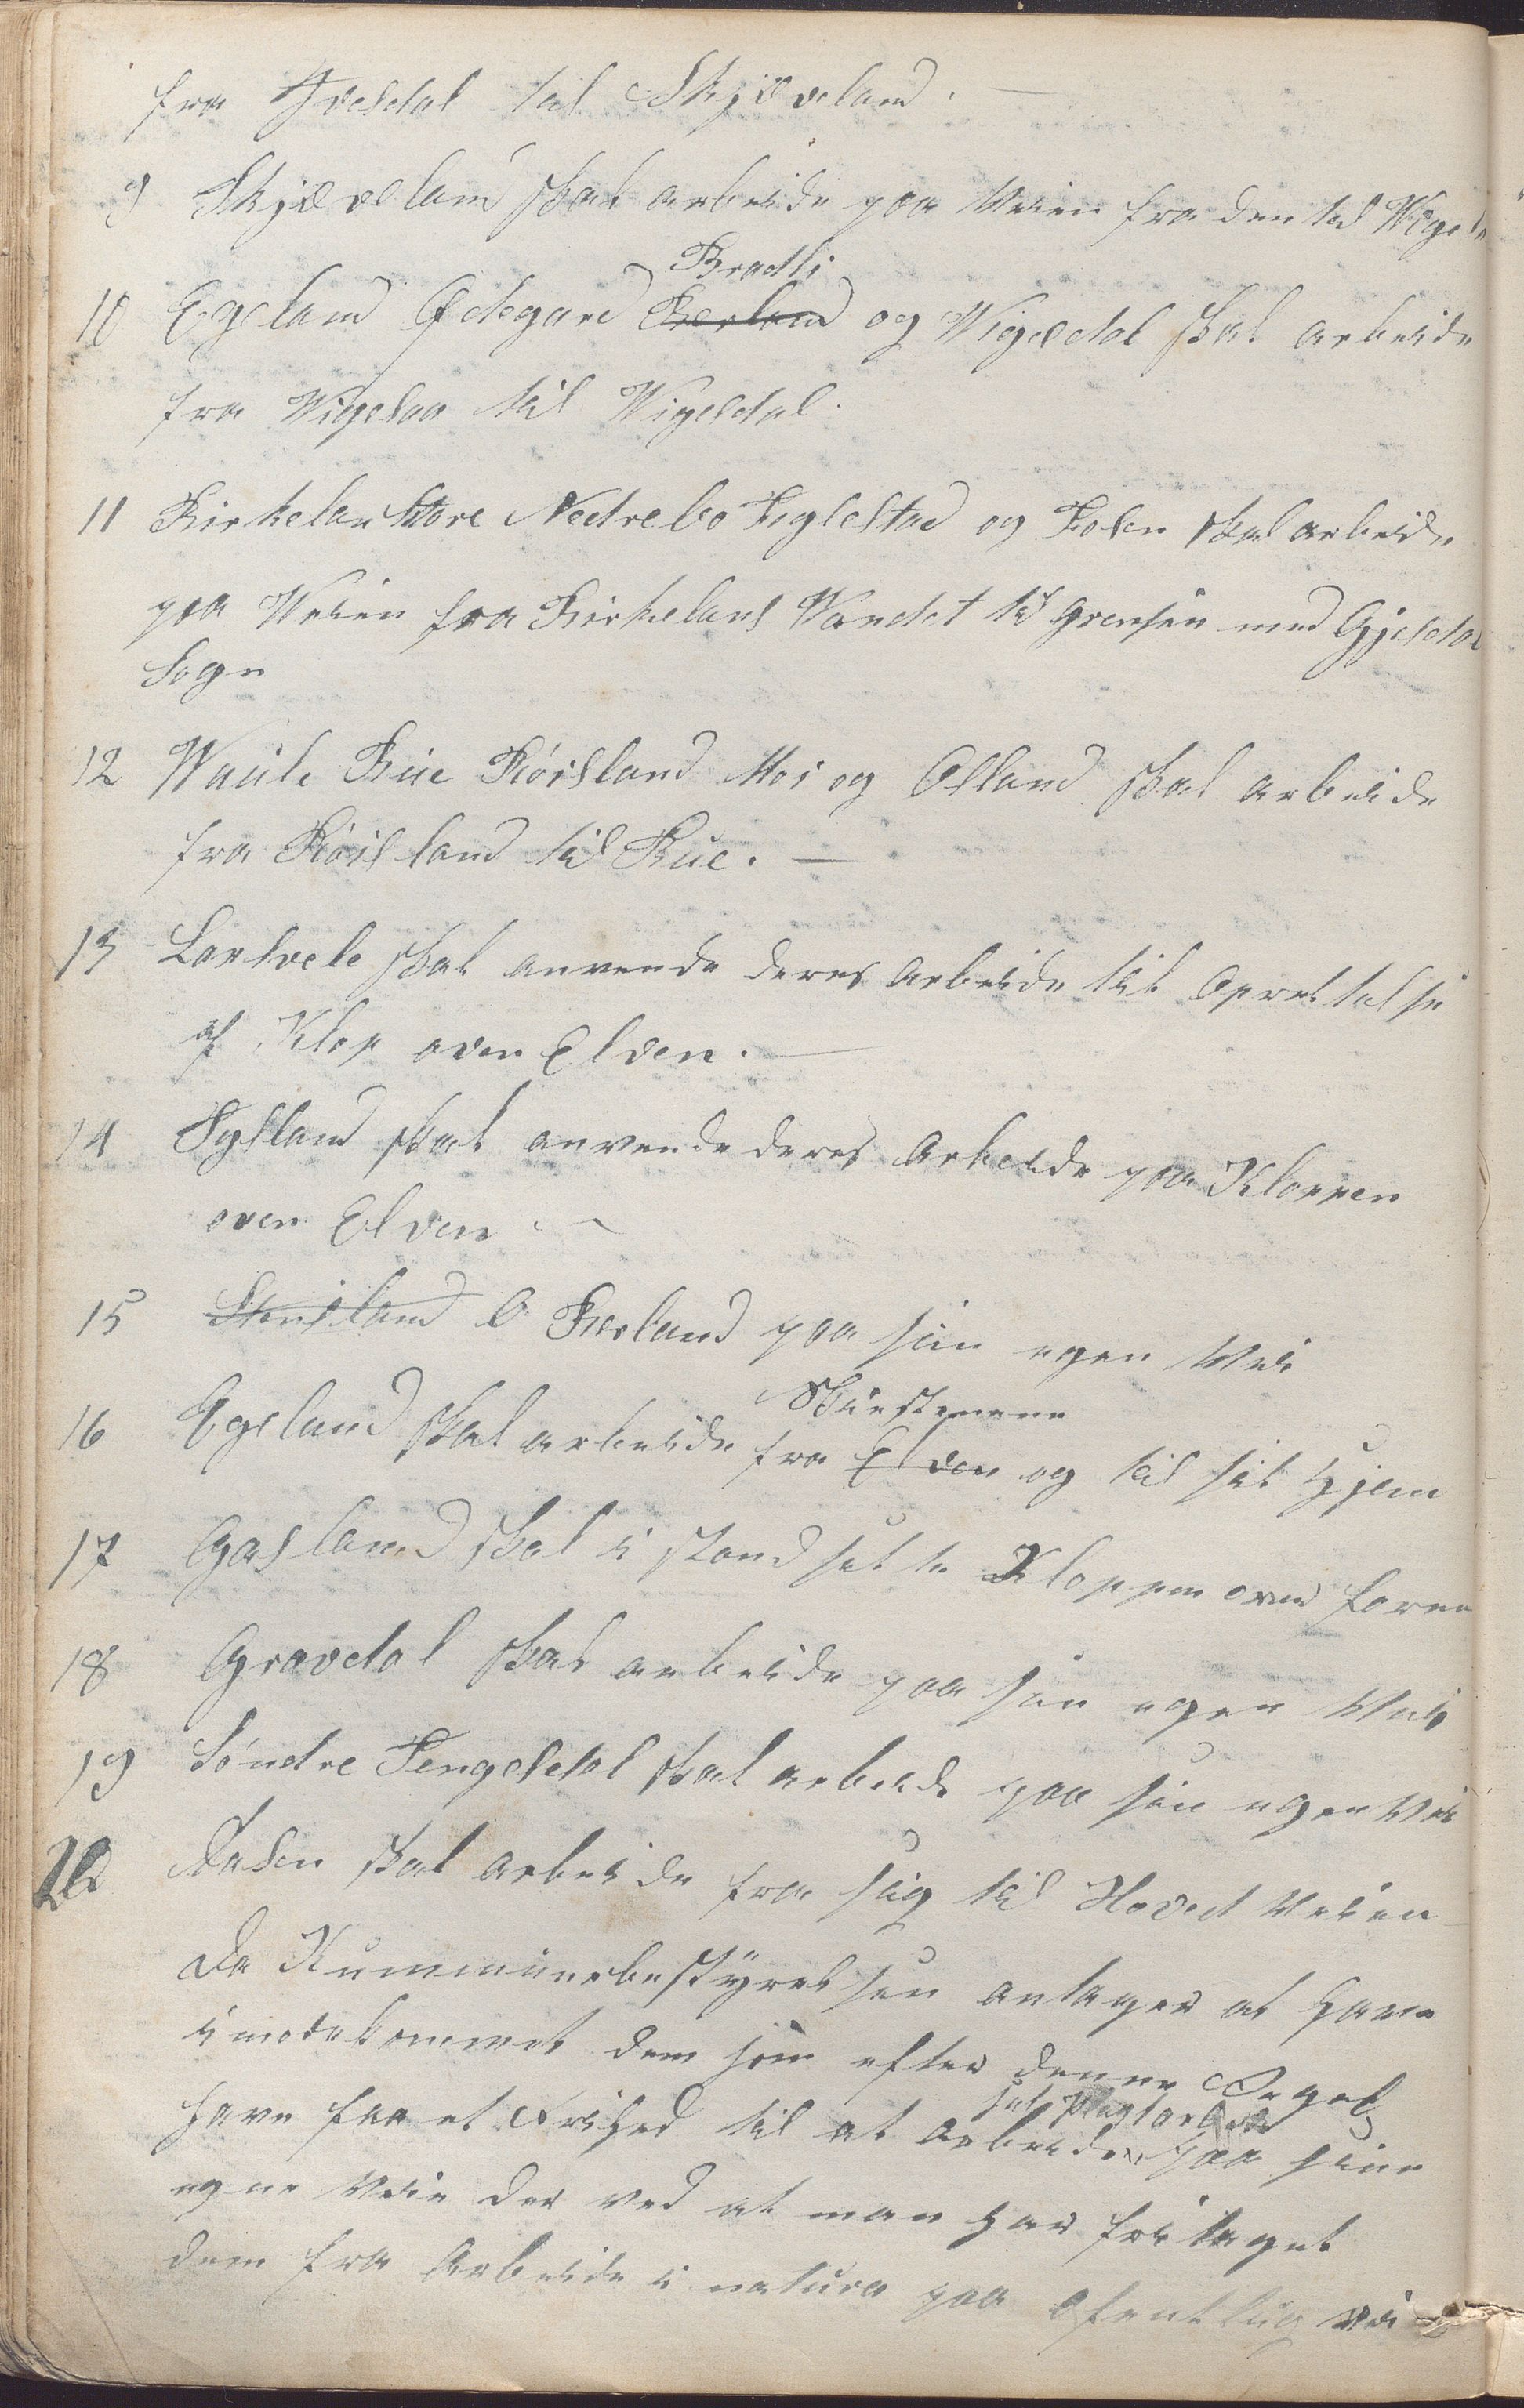 fra Ivesdal til Skjæveland. —
9 Skjæveland skal arbeide paa Veien fra den til Vigelaa
Bradli
10 Egeland Ødegard Kværland og Vigesdal skal arbeide
fra Vigelaa til Vigesdal.
11 Kirkeland Store Nedrebo Fuglestad og Fosen skal arbeide
paa Veien fra Kirkelans Vandet til Grensen med Gjesdal
Sogn
12 Waule Bue Røisland Moi og Olland skal arbeide
fra Røisland til Bue. —
13 Lortvele skal anvende deres Arbeide til Oprettelse
af Klop over Elven. —
14 Tysland skal anvende deres Arbeide paa Kloppen
over Elven. —
15 Stensland O Kværland paa sin egen Vei
Skiestenene
16 Egeland skal arbeide fra Elven og til sit Hjem
17 Gasland skal i stand sette Kloppen over
18 Gravdal skal arbeide paa sin egen Vei
19 Søndre Tengesdal skal arbeide paa sin egen Vei
20 Aasen skal arbeide fra sig til Hoved Veien
Da Kummunebestyrelsen antager at have
imødekommet dem som efter denne Regel
sit Pligtarbeide
have faaet Frihed til at Arbeide paa sine
egne Veie der ved at man har fritaget
dem fra Arbeide i natura paa Ofentlig vei